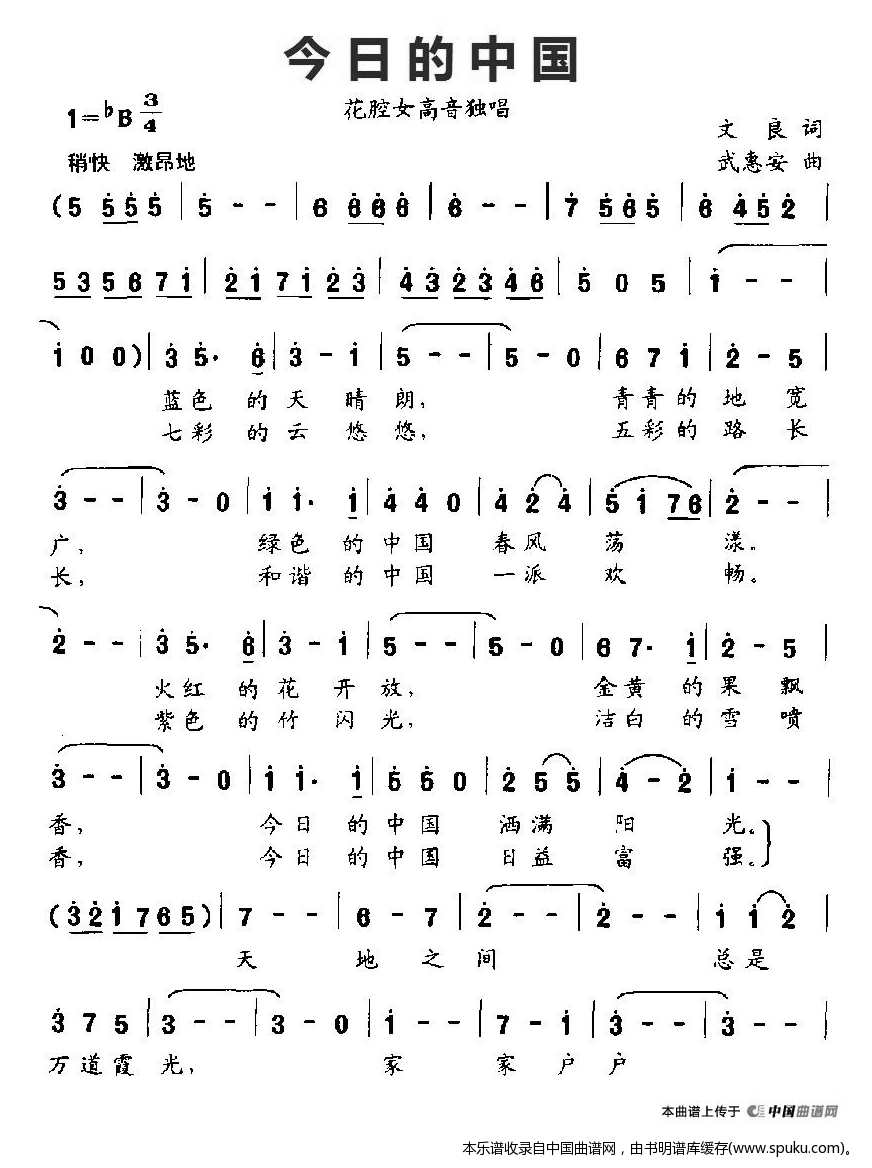 今日的中国
花腔女高音独唱
1=♭B 3/4
文良词
稍快 激昂地
武惠安 曲
(5 555 | 5 - - | 6 666 | 6 - - | 7 565 | 6 452 |
535671 | 217123 | 432346 | 5 0 5 | 1 - - |
1 0 0) | 3 5· 6 | 3 - 1 | 5 - - | 5 - 0 | 6 7 1 | 2 - 5 |
蓝色 的天 晴朗, 青青的地 宽
七彩 的云 悠悠, 五彩的路 长
3 - - | 3 - 0 | 1 1· 1 | 4 4 0 | 4 2 4 | 5 1 76 | 2 - - |
广, 绿色 的中国 春风 荡 漾。
长, 和谐 的中国 一派 欢 畅。
2 - - | 3 5· 6 | 3 - 1 | 5 - - | 5 - 0 | 6 7· 1 | 2 - 5 |
火红 的花 开放, 金黄 的果 飘
紫色 的竹 闪光, 洁白 的雪 喷
3 - - | 3 - 0 | 1 1· 1 | 5 5 0 | 2 5 5 | 4 - 2 | 1 - - |
香, 今日 的中国 洒满 阳 光。
香, 今日 的中国 日益 富 强。
(321765) | 7 - - | 6 - 7 | 2 - - | 2 - - | 1 1 2 |
天 地之间 总是
3 7 5 | 3 - - | 3 - 0 | 1 - - | 7 - 1 | 3 - - | 3 - - |
万道霞光, 家 家户户
本曲谱上传于 中国曲谱网
本乐谱收录自中国曲谱网，由书明谱库缓存(www.spuku.com)。